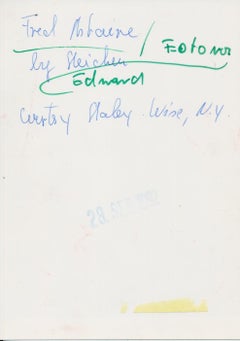 Fred Astaire / Fotovor
by Steichen
Edward
Curtsy Staley. Wise, N.Y.
28. SEP. 1992